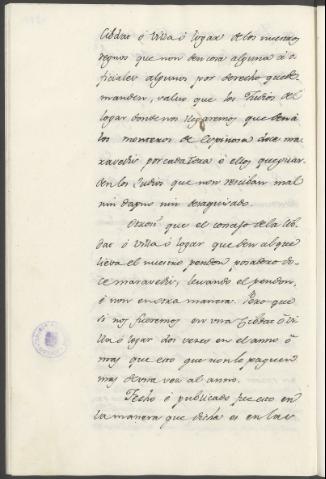 Cibdat ó Villa ó logar de los nuestros
regnos que non den cosa alguna á o-
ficiales algunos por derecho que de-
manden, salvo que los Judios del
logar donde nos llegaremos que den á
los monteros de Espinosa doce ma-
ravedis por cada tora é ellos que guar-
den los Judios que non reciban mal
nin dapno nin desaguisado.
Otrosi que el concejo de la cib-
dat ó Villa ó logar que den al que
lieva el nuestro pendon posadero do-
ce maravedis, levando el pendon,
é non en otra manera. Pero que
si nos fueremos en una Cibdat ó vi-
lla ó logar dos veces en el anno ó
mas que esto que non lo paguen
mas de una vez al anno.
Fecho é publicado fue esto en
la manera que dicha es en las